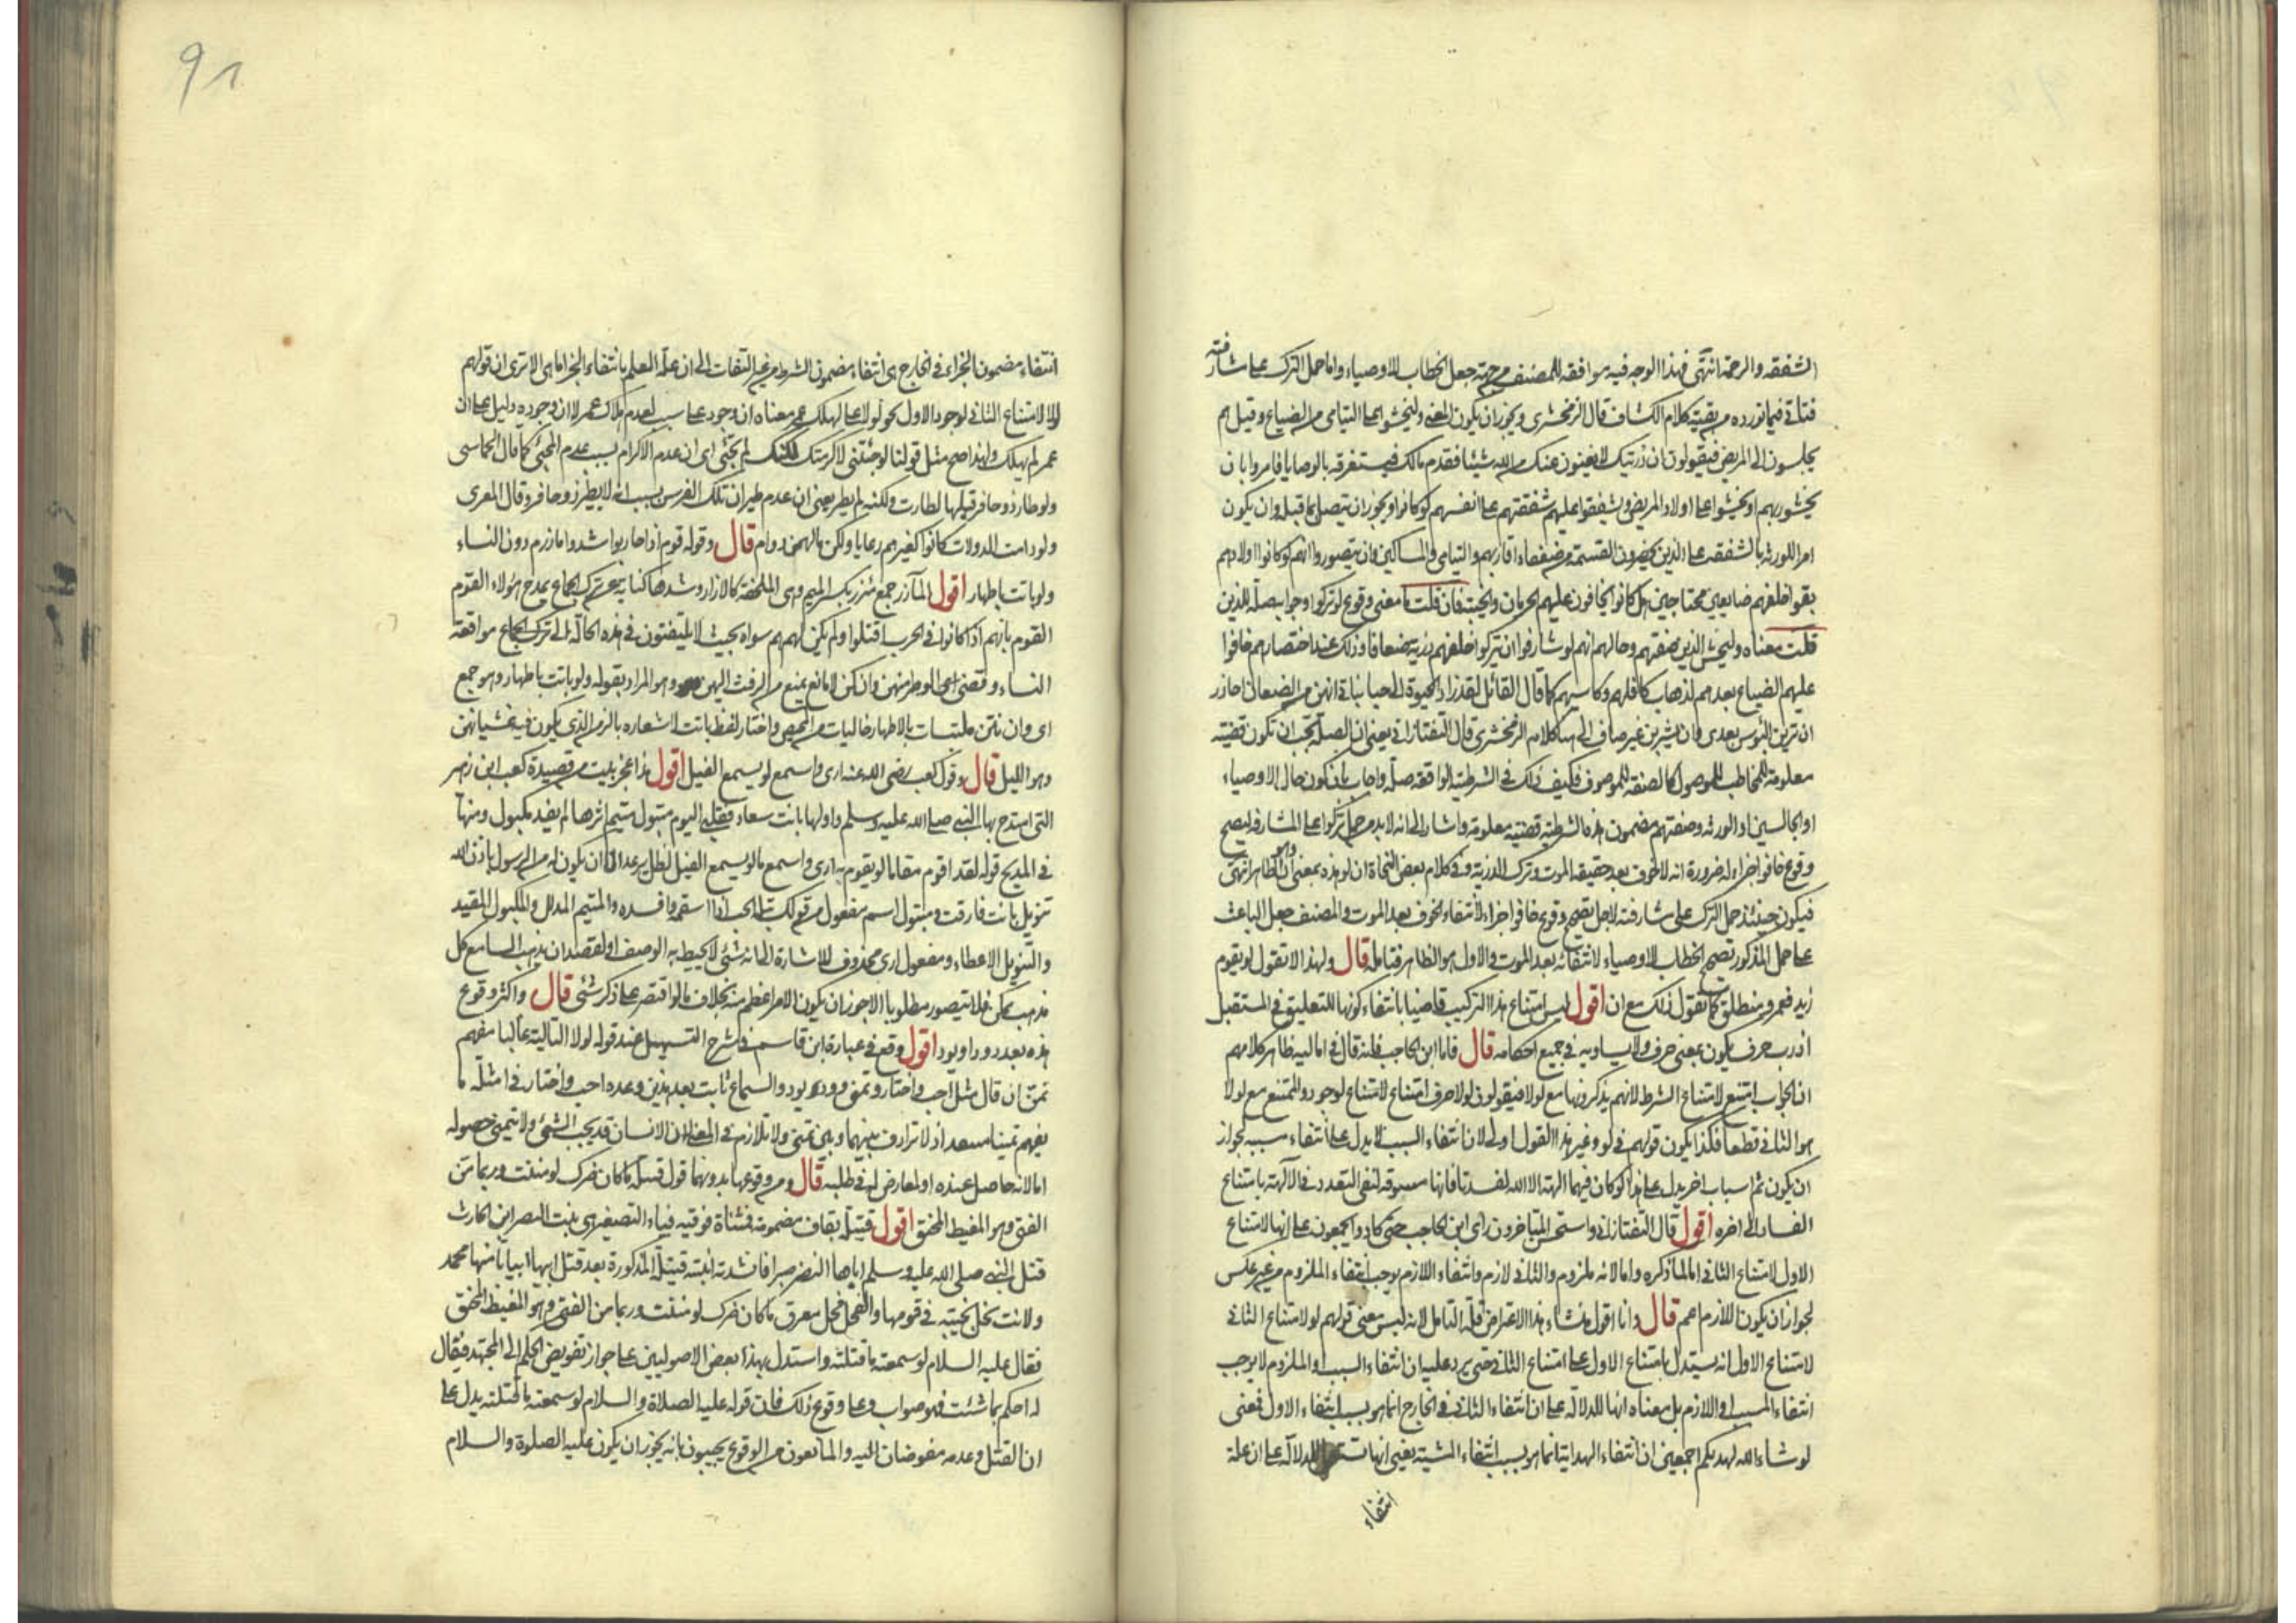 الشفقة والرحمة انتهى فهذا الوجه فيه موافقة للمصنف من جهة جعل الخطاب للاوصياء واما حمل الترك على مشارفته
فتأتي فيما نورده من بقية كلام الكشاف قال الزمخشري ويجوز ان يكون المعنى وليخشوا على اليتامى من الضياع وقيل هم
يجلسون الى المريض فيقولون ان ذريتك لا يغنون عنك من الله شيئا فقدم مالك فيستغرقه بالوصايا فامروا بان
يخشوا ربهم او يخشوا على اولاد المريض ويشفقوا عليهم شفقتهم على انفسهم لو كانوا ويجوز ان يتصل بما قبله وان يكون
امرا للورثة بالشفقة على الذين يحضرون القسمة من ضعفاء اقاربهم واليتامى والمساكين وان يتصوروا انهم لو كانوا اولادهم
بقوا خلفهم ضايعين محتاجين هل كانوا يخافون عليهم الحرمان والخيبة فان قلت ما معنى وقوع لو تركوا وجوابه صلة للذين
قلت معناه وليخش الذين صفتهم وحالهم انهم لو شارفوا ان يتركوا خلفهم ذرية ضعافا وذلك عند احتضارهم خافوا
عليهم الضياع بعدهم لذهاب كافلهم وكاسبهم كما قال القائل لقد زاد الحيوة الي حبا بناتي انهن من الضعاف احاذر
ان ترين البؤس بعدي وان يشربن غير صاف الى هنا كلام الزمخشري قال التفتازاني يعني ان الصلة يجب ان تكون قضية
معلومة للمخاطب للموصول كالصفة للموصوف فكيف ذلك في الشرطية الواقعة صلة واجاب بان كون حال الاوصياء
او الجالسين او الورثة وصفتهم مضمون هذه الشرطية قضية معلومة واشار الى انه لا بد من حمل تركوا على المشارفة ليصح
وقوع خافوا جزاء له ضرورة انه لا خوف بعد حقيقة الموت وترك الذرية وفي كلام بعض النحاة ان لو هذه بمعنى ان وهو الظاهر انتهى
فيكون حينئذ حمل الترك على مشارفته لاجل تصحيح وقوع خافوا جزاء لانتفاء الخوف بعد الموت والمصنف جعل الباعث
على حمل المذكور تصحيح الخطاب للاوصياء لانتفائه بعد الموت والاول هو الظاهر فتامله قال ولهذا لا تقول لو يقوم
زيد فعمرو منطلق كما تقول ذلك مع ان اقول ليس امتناع هذا التركيب قاضيا بانتفاء كونها للتعليق في المستقبل
اذ رب حرف يكون بمعنى حرف ولا يساويه في جميع احكامه قال فاما ابن الحاجب فانه قال في اماليه ظاهر كلامهم
ان الجواب امتنع لامتناع الشرط لانهم يذكرونها مع لولا فيقولون لولا حرف امتناع لامتناع لوجود والممتنع مع لولا
هو الثاني قطعا فكذا يكون قولهم في لو وغير هذا القول اولى لان انتفاء السبب لا يدل على انتفاء مسببه لجواز
ان يكون ثم اسباب اخر يدل على هذا لو كان فيهما الهة الا الله لفسدتا فانها مسوقة لنفي التعدد في الآلهة بامتناع
الفساد الى اخره اقول قال التفتازاني واستحسن المتاخرون راى ابن الحاجب حتى كادوا يجمعون على انها لامتناع
الاول لامتناع الثاني اما لما ذكره واما لانه ملزوم والثاني لازم وانتفاء اللازم يوجب انتفاء الملزوم من غير عكس
لجواز ان يكون اللازم اعم قال وانا اقول منشاء هذا الاعتراض قلة التامل لانه ليس معنى قولهم لو لامتناع الثاني
لامتناع الاول انه يستدل بامتناع الاول على امتناع الثاني حتى يرد عليه ان انتفاء السبب والملزوم لا يوجب
انتفاء المسبب واللازم بل معناه انها للدلالة على ان انتفاء الثاني في الخارج انما هو بسبب انتفاء الاول فمعنى
لو شاء الله لهديكم اجمعين ان انتفاء الهداية انما هو بسبب انتفاء المشية يعني انها تستعمل للدلالة على ان علة
انتفاء
91
انتفاء مضمون الجزاء في الخارج هي انتفاء مضمون الشرط من غير التفات الى ان علة العلم بانتفاء الجزاء ما هي الا ترى ان قولهم
لولا لامتناع الثاني لوجود الاول نحو لولا علي لهلك عمر معناه ان وجود علي سبب لعدم هلاك عمر لا ان وجوده دليل على ان
عمر لم يهلك ولهذا صح مثل قولنا لو جئتني لاكرمتك لكنك لم تجئ اى ان عدم الاكرام بسبب عدم المجئ كما قال الحماسي
ولو طار ذو حافر قبلها لطارت ولكنه لم يطر يعني ان عدم طيران تلك الفرس بسبب انه لا يطير ذو حافر وقال المعري
ولو دامت الدولات كانوا كغيرهم رعايا ولكن ما لهن دوام قال وقوله قوم اذا حاربوا شدوا مازرهم دون النساء
ولو باتت باطهار اقول المآزر جمع مئزر بكسر الميم وهي الملحفة كالازار وشدها كناية عن ترك الجماع يمدح هؤلاء القوم
القوم بانهم اذا كانوا في الحرب اقتتلوا ولم يكن لهم هم سواه بحيث لا يلتفتون في هذه الحالة الى ترك الجماع موافقة
النساء وقضى الوطر منهن وان كن لا مانع يمنع من الرفث اليهن وهو المراد بقوله ولو باتت باطهار وهو جمع
اى وان بتن ملتبسات بالاطهار خاليات من الحيض واختار لفظ باتت لاشعاره بالزمن الذي يكون فيه غشيانهن
وهو الليل قال وقول كعب رضي الله عنه ارى واسمع لو يسمع الفيل اقول هذا عجز بيت من قصيدة كعب ابن زهير
التي امتدح بها النبي صلى الله عليه وسلم واولها بانت سعاد فقلبي اليوم متبول متيم اثرها لم يفد مكبول ومنها
في المديح قوله لقد اقوم مقاما لو يقوم به ارى واسمع ما لو يسمع الفيل لظل يرعد الا ان يكون له من الرسول باذن الله
تنويل بانت فارقت ومتبول اسم مفعول من قولك تبله الحب اذا اسقمه وافسده والمتيم المذلل والمكبول المقيد
والتنويل الاعطاء ومفعول ارى محذوف للاشارة الى انه شئ لا يحيط به الوصف او لقصد ان يذهب السامع كل
مذهب ممكن فلا يتصور مطلوبا الا جوز ان يكون الامر اعظم منه بخلاف ما لو اقتصر على ذكر شئ قال واكثر وقوع
هذه بعد ود او يود اقول وقع في عبارة ابن قاسم في شرح التسهيل عند قوله لولا التالية غالبا مفهم
تمن ان قال مثل احب واختار وتمنى وود يود والسماع ثابت بعد هذين وعده احب واختار في امثلة ما
يفهم تمنيا مستبعد اذ لا ترادف بينهما وبين تمنى ولا تلازم في المعنى لان الانسان قد يحب الشئ ولا يتمنى حصوله
اما لانه حاصل عنده او لمعارض له في طلبه قال ومن وقوعها بدونهما قول قتيلة ما كان ضرك لو مننت وربما من
الفتى وهو المغيظ المحنق اقول قتيلة بقاف مضمومة فمثناة فوقيه فياء التصغير هي بنت النضر ابن الحارث
قتل النبي صلى الله عليه وسلم اباها النضر صبرا فانشدته ابنته قتيلة المذكورة بعد قتل ابيها ابياتا منها محمد
ولانت نجل نجيبة في قومها والفحل فحل معرق ما كان ضرك لو مننت وربما من الفتى وهو المغيظ المحنق
فقال عليه السلام لو سمعته ما قتلته واستدل بهذا بعض الاصوليين على جواز تفويض الحكم الى المجتهد فيقال
له احكم بما شئت فهو صواب وعلى وقوع ذلك فان قوله عليه الصلاة والسلام لو سمعته ما قتلته يدل على
ان القتل وعدمه مفوضان اليه والمانعون من الوقوع يجيبون بانه يجوز ان يكون عليه الصلوة والسلام